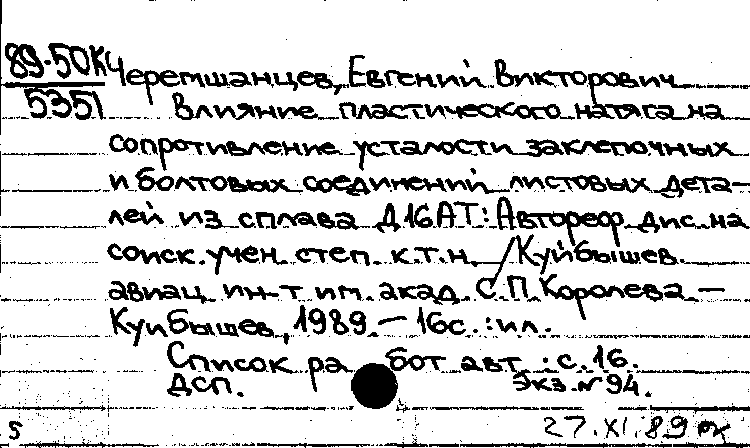 89-50КЧ
5351
Черемшанцев, Евгений Викторович
Влияние пластического натяга на
сопротивление усталости заклепочных
и болтовых соединений листовых дета-
лей из сплава Д16АТ: Автореф. дис. на
соиск. учен. степ. к.т.н. / Куйбышев.
авиац. ин-т им. акад. С.П. Королева. —
Куйбышев, 1989. — 16с. : ил.
Список работ авт.: с. 16.
ДСП. Экз. № 94.
5 27.XI.89